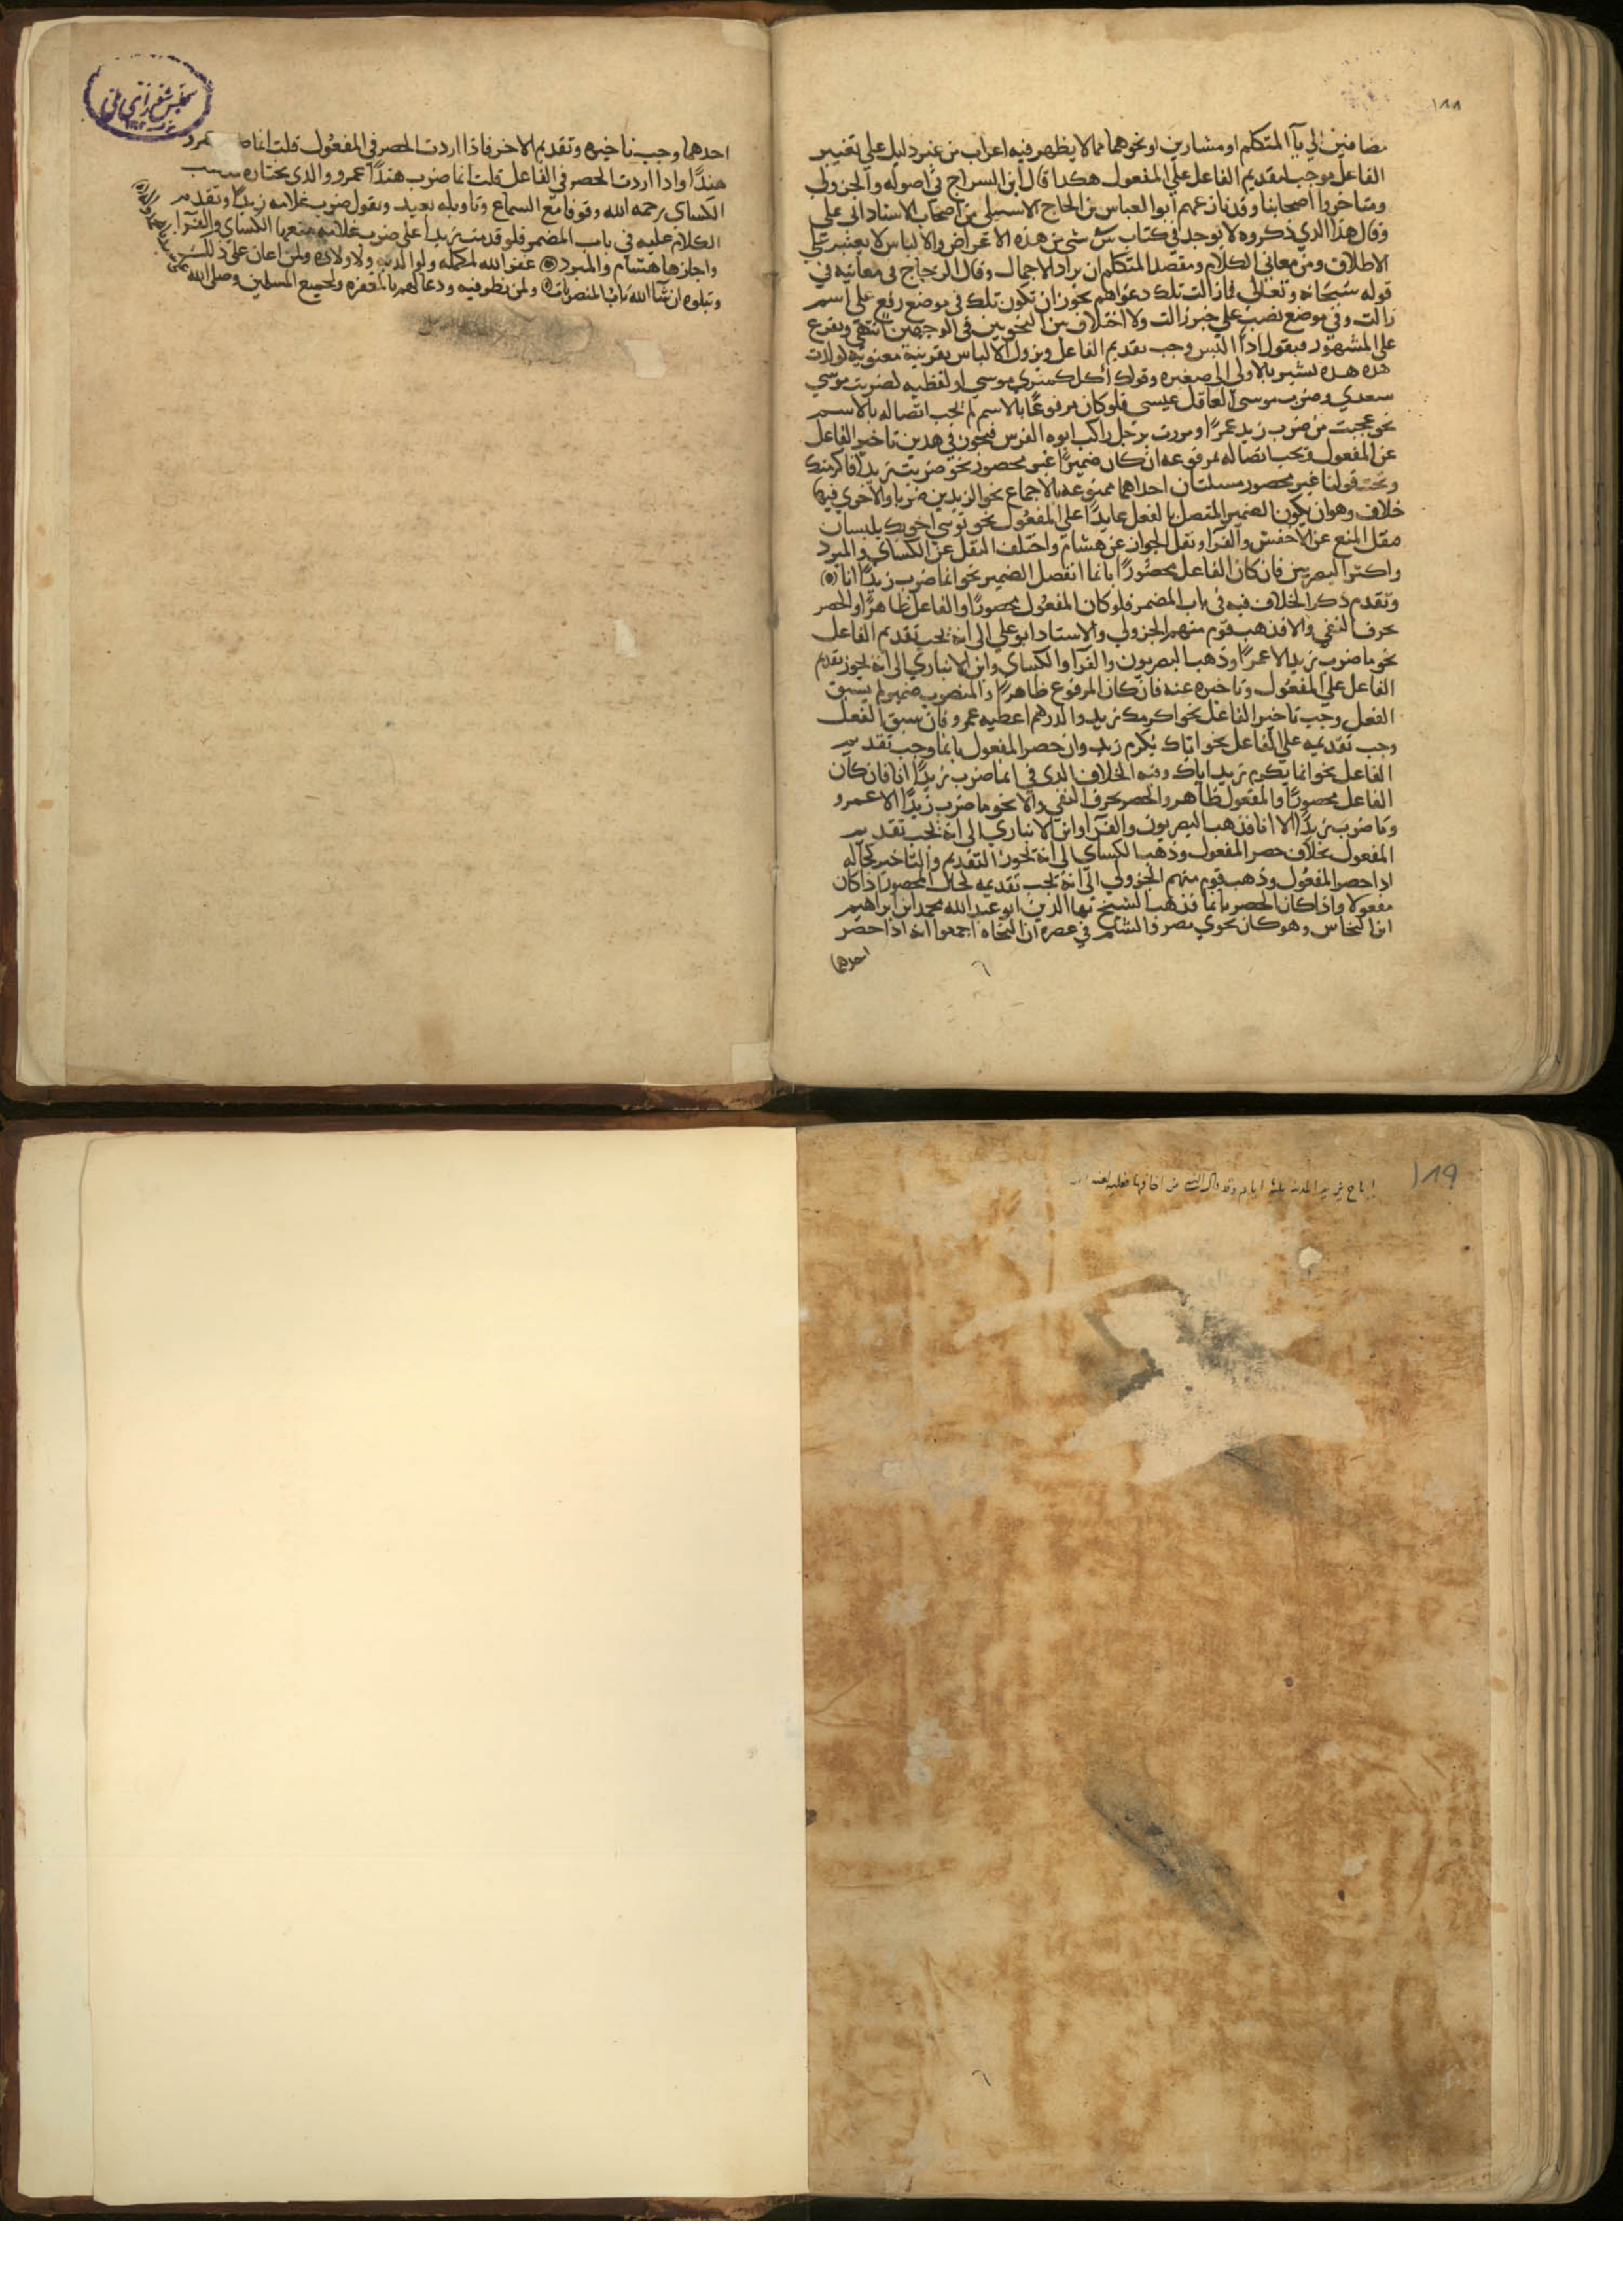 ١٨٨
مضافين الي يآ المتكلم او مشارين او نحوهما مما لا يظهر فيه اعراب من غير دليل علي تغيير
الفاعل موجب لتقديم الفاعل علي المفعول هكدا قال ابن السراج في اصوله والجزولي
ومتاخروا اصحابنا وقد نازعهم ابوا لعباس بن الحاج الاسبيلي من اصحاب الاستاد ابي علي
وقال هذا الدي ذكروه لا يوجد في كتاب س شي من هذه الاغراض والالباس لا يعتبر علي
الاطلاق ومن معاني الكلام ومقصد المتكلم ان يراد الاجمال وقال الزجاج في معانيه في
قوله سبحانه وتعالي فما زالت تلك دعواهم يجوز ان تكون تلك في موضع رفع علي اسم
زالت وفي موضع نصب علي خبر زالت ولا اختلاف بين النحويين في الوجهين انتهي ونفرع
علي المشهور فيقول اذا التبس وجب تقديم الفاعل ويزول الالباس بقرينة معنوية لولدت
هذه هده تشير بالاولي الي صغيره وقولك اكل كمثري موسي او لفظيه لضربت موسي
سعدي وضرب موسي العاقل عيسي فلو كان مرفوعا بالاسم لم يجب اتصاله بالاسم
نحو عجبت من ضرب زيد عمرًا ومررت برجل راكب ابوه الفرس فيجوز في هدين تاخير الفاعل
عن المفعول ويجب اتصاله بمرفوعه ان كان ضميرًا غير محصور نحو ضربت زيدًا فاكرمتك
وتحت قولنا غير محصور مسلتان احداهما ممنوعه بالاجماع نحو الزيدين ضربا والاخري فيها
خلاف وهو ان يكون الضمير المتصل بالفعل عايدًا علي المفعول نحو ثوبي اخويك يلبسان
فنقل المنع عن الاخفش والفرا ونقل الجواز عن هشام واختلف النقل عن الكساي والمبرد
واكثر البصريين فان كان الفاعل محصورًا بانما انفصل الضمير نحو انما ضرب زيدًا انا
وتقدم ذكر الخلاف فيه في باب المضمر فلو كان المفعول محصورًا والفاعل ظاهرًا والحصر
بحرف النفي والا فذهب قوم منهم الجزولي والاستاد ابو علي الي انه يجب تقديم الفاعل
نحو ما ضرب زيد الا عمرًا وذهب البصريون والفرا والكساي وابن الانباري الي انه يجوز تقديم
الفاعل علي المفعول وتاخيره عنه فان كان المرفوع ظاهرًا والمنصوب ضمير لم يسبق
الفعل وجب تاخير الفاعل نحو اكرمك زيد والدرهم اعطيه عمرو فان سبق الفعل
وجب تقديمه علي الفاعل نحو اياك يكرم زيد وان حصر المفعول بانما وجب تقديم
الفاعل نحو انما يكرم زيد اياك وفيه الخلاف الدي في انما ضرب زيدًا انا فان كان
الفاعل محصورًا والمفعول ظاهر والحصر بحرف النفي والا نحو ما ضرب زيدًا الا عمرو
وما ضرب زيدًا الا انا فذهب البصريون والفرا وابن الانباري الي انه يجب تقديم
المفعول بخلاف حصر المفعول وذهب الكساي الي انه يجوز التقديم والتاخير كحاله
اذا حصر المفعول وذهب قوم منهم الجزولي الي انه يجب تقديمه كحال المحصور اذا كان
مفعولا واذا كان الحصر بانما فذهب الشيخ بها الدين ابو عبد الله محمد ابن ابراهيم
ابن النحاس وهو كان نحوي مصر والشام في عصره ان النحاه اجمعوا انه اذا حصر
احدهما
احدهما وجب تاخيره وتقديم الاخر فاذا اردت الحصر في المفعول قلت انما ضرب عمرو
هندًا واذا اردت الحصر في الفاعل قلت انما ضرب هندًا عمرو والدي يختاره مذهب
الكساي رحمه الله وقوفا مع السماع وتاويله بعيد وتقول ضرب غلامه زيدًا وتقدم
الكلام عليه في باب المضمر فلو قدمت زيدًا علي ضرب غلامه منعها الكساي والفرآ
واجازها هشام والمبرد عفو الله لمكمله ولوالديه ولاولاده ولمن اعان علي ذلك
وتيلوه ان شآ الله باب المنصوبات ولمن نظر فيه ودعا لهم بالمغفره ولجميع المسلمين وصلي الله علي
١٨٩